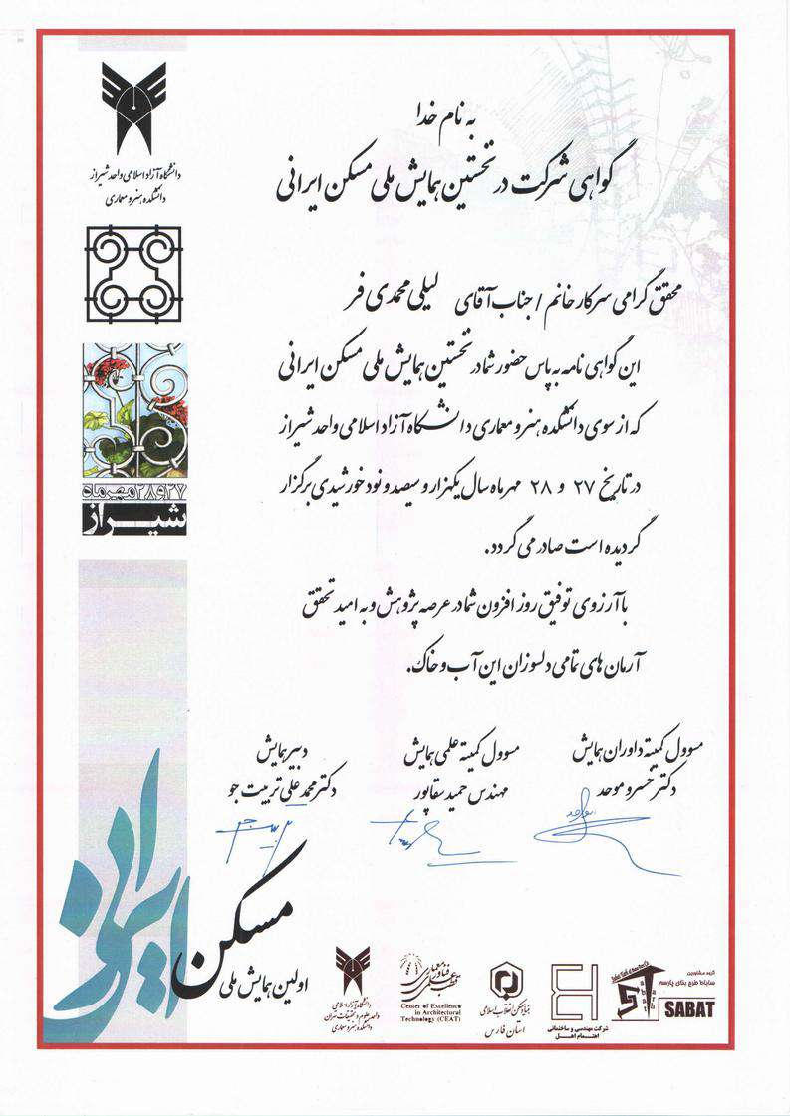 به نام خدا
گواهی شرکت در نخستین همایش ملی مسکن ایرانی
دانشگاه آزاد اسلامی واحد شیراز
دانشکده هنر و معماری
محقق گرامی سرکار خانم / جناب آقای لیلی محمدی فر
این گواهی نامه به پاس حضور شما در نخستین همایش ملی مسکن ایرانی
که از سوی دانشکده هنر و معماری دانشگاه آزاد اسلامی واحد شیراز
در تاریخ ۲۷ و ۲۸ مهرماه سال یکهزار و سیصد و نود خورشیدی برگزار
گردیده است صادر می گردد.
۲۷و۲۸ مهرماه
شیراز
با آرزوی توفیق روز افزون شما در عرصه پژوهش و به امید تحقق
آرمان های تمامی دلسوزان این آب و خاک.
مسوول کمیته داوران همایش
دکتر خسرو موحد
مسوول کمیته علمی همایش
مهندس حمید سقاپور
دبیر همایش
دکتر محمد علی تربیت جو
مسکن
ایرانی
اولین همایش ملی
دانشگاه آزاد اسلامی
واحد علوم و تحقیقات تهران
دانشکده هنر و معماری
قطب علمی فناوری معماری
Center of Excellence
in Architectural
Technology (CEAT)
بنیاد مسکن انقلاب اسلامی
استان فارس
شرکت مهندسی و ساختمانی
اهتمام اهل
گروه مشاورین
ساباط طرح بنای پارسه
SABAT